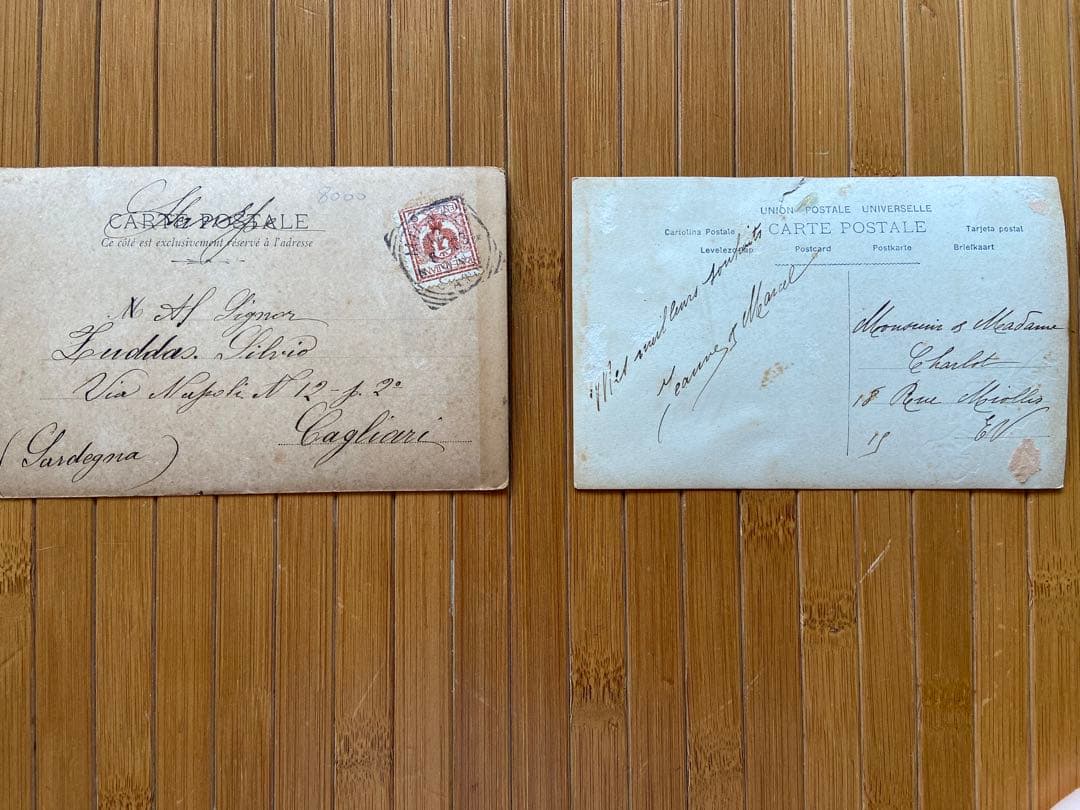 8000
CARTE POSTALE
Ce côté est exclusivement réservé à l'adresse
Al Signor
Zuddas. Silvio
Via Napoli N 12 - p. 2º
Cagliari
(Sardegna)
UNION POSTALE UNIVERSELLE
Cartolina Postale CARTE POSTALE Tarjeta postal
Postcard Postkarte Briefkaart
meilleurs souhaits
Jeanne & Marcel
Monsieur & Madame
Charlot
18 Rue Miollis
15 EV